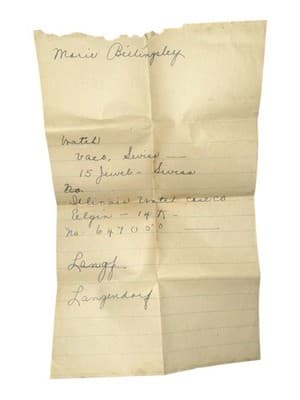 Marie Billingsley
Watch
Vaco, Swiss —
15 Jewel - Swiss
No.
Illinois Watch Case Co
Elgin - 14 K -
No. 647050
Langf
Langendorf